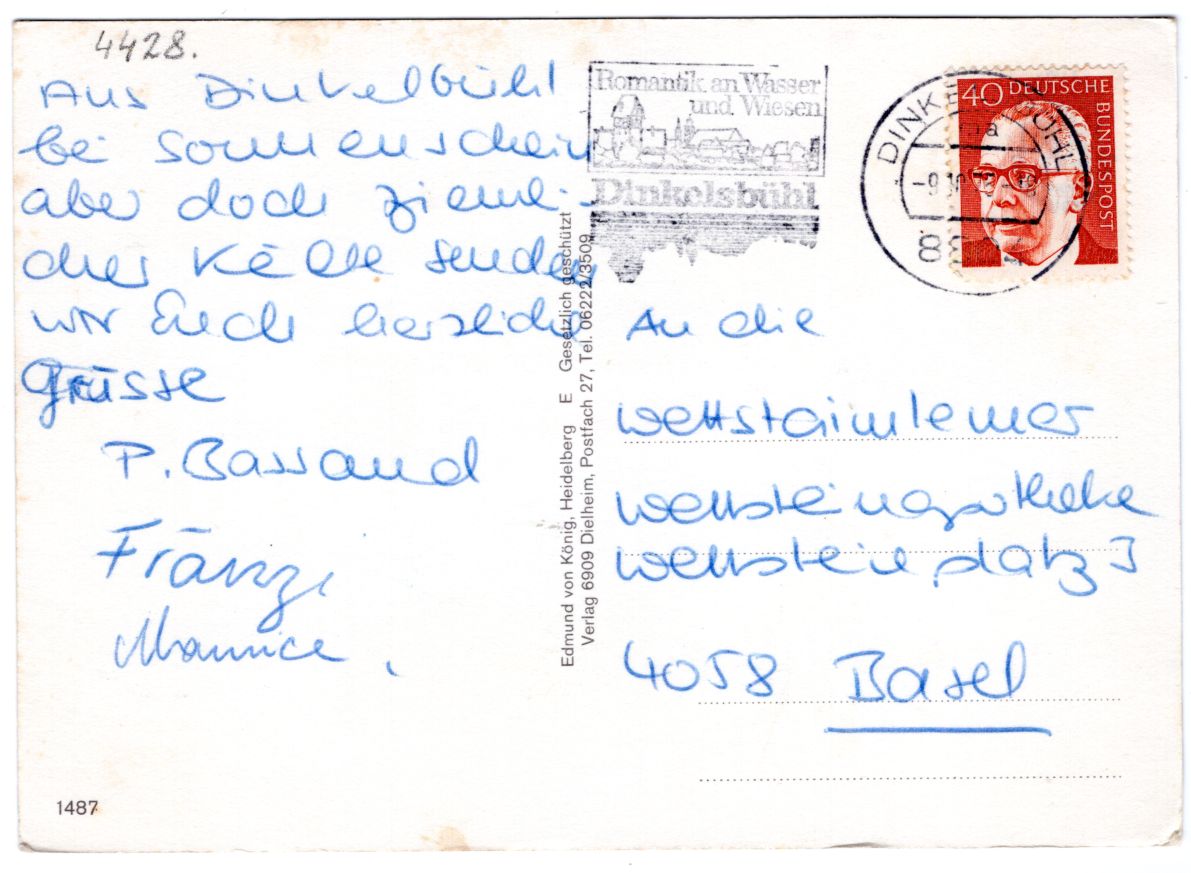 4428.
Aus Dinkelbühl
bei Sonnenschein
aber doch ziemli-
cher Kälte senden
wir Euch herzliche
Grüsse
P. Bassand
Fränzi
Maurice.
1487
Edmund von König, Heidelberg E Gesetzlich geschützt
Verlag 6909 Dielheim, Postfach 27, Tel. 06222/3509
Romantik an Wasser
und Wiesen
Dinkelsbühl
40 DEUTSCHE
BUNDESPOST
An die
Wettsteinapotheke
Wettsteinplatz
4058 Basel